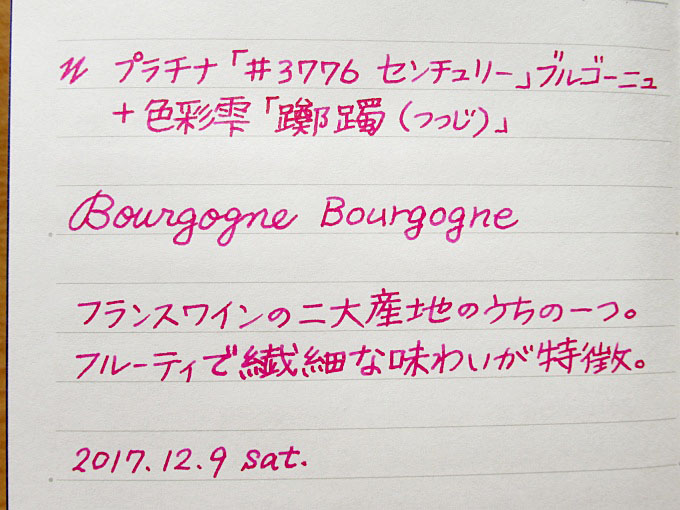 プラチナ「#3776 センチュリー」ブルゴーニュ
+色彩雫「躑躅(つつじ)」
Bourgogne Bourgogne
フランスワインの二大産地のうちの一つ。
フルーティで繊細な味わいが特徴。
2017.12.9 sat.